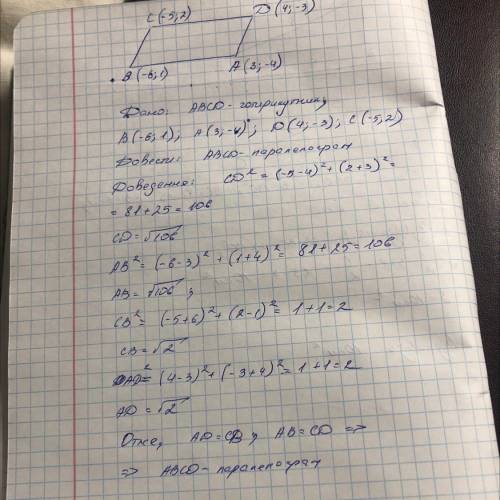 C(-5;2) D(4;-3)
B(-6;1) A(3;-4)
Дано: ABCD - чотирикутник,
B(-6;1), A(3;-4); D(4;-3); C(-5;2)
Довести: ABCD - паралелограм
Доведення: CD² = (-5-4)² + (2+3)² =
= 81+25 = 106
CD = √106
AB² = (-6-3)² + (1+4)² = 81+25 = 106
AB = √106;
CB² = (-5+6)² + (2-1)² = 1+1 = 2
CB = √2
AD² = (4-3)² + (-3+4)² = 1+1 = 2
AD = √2
Отже, AD = CB, AB = CD =>
=> ABCD - паралелограм